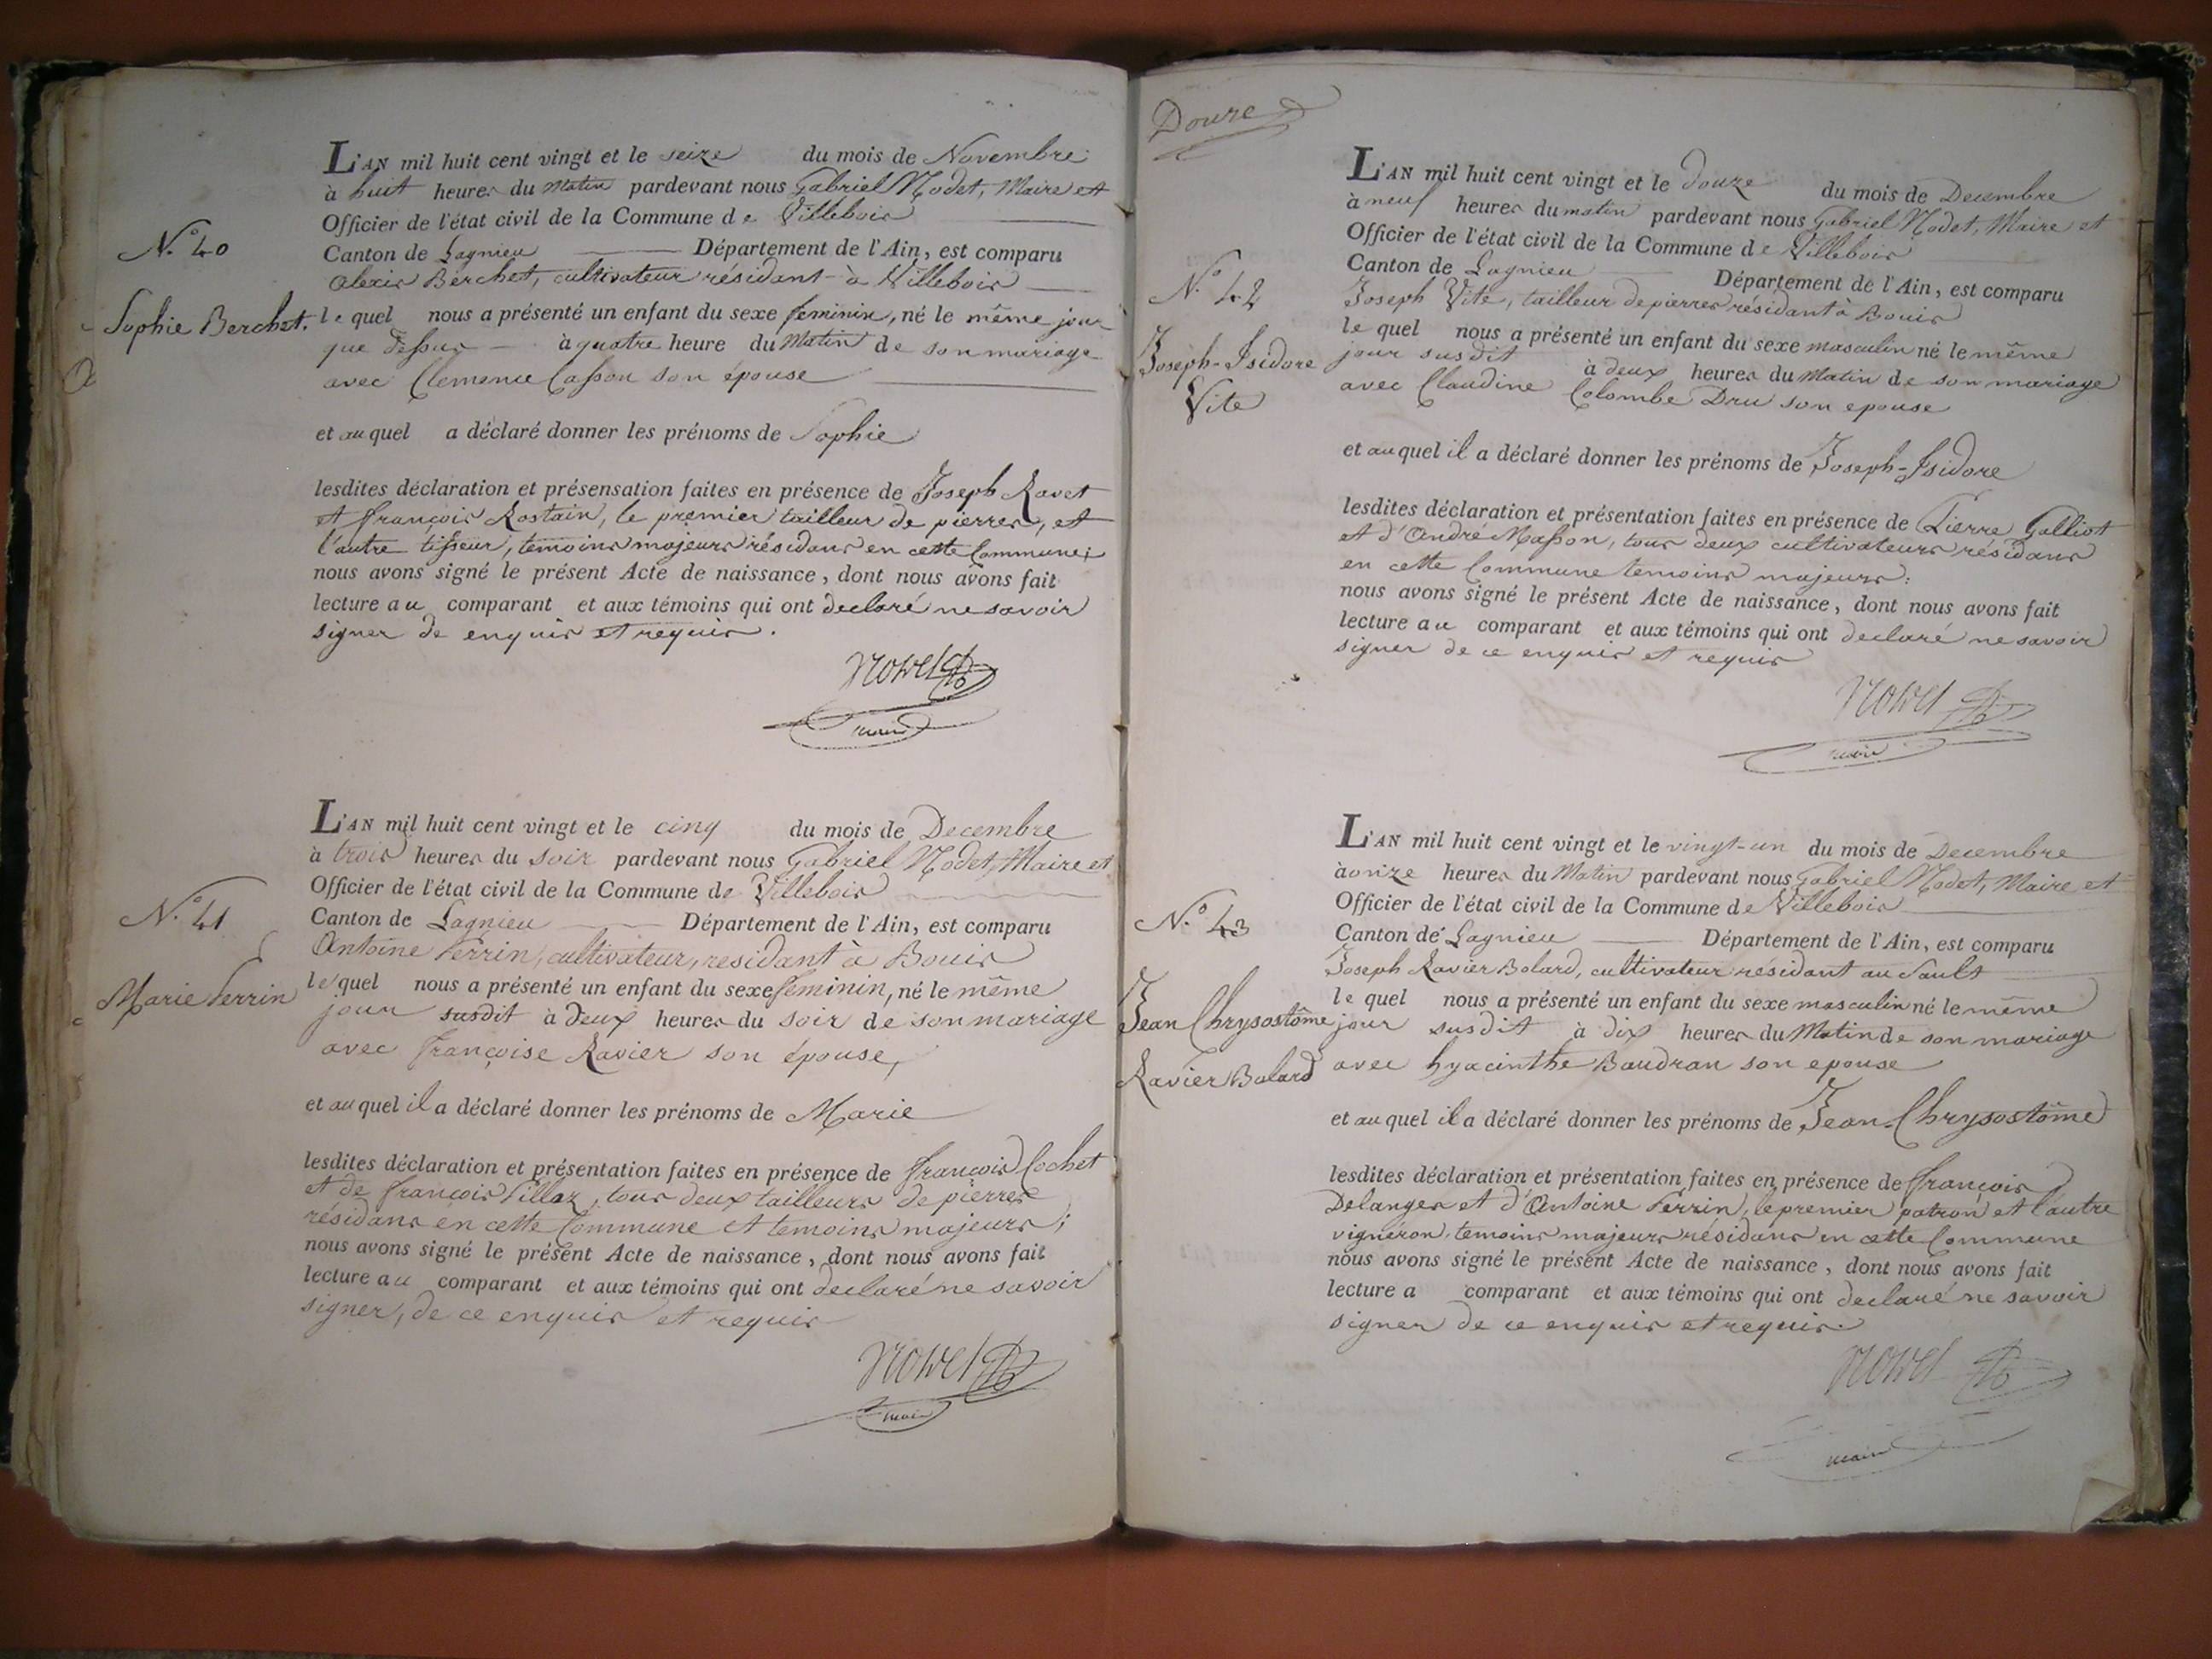 N.° 40
Sophie Berchet.
L'AN mil huit cent vingt et le seize du mois de Novembre
à huit heures du matin pardevant nous Gabriel Nodet, Maire et
Officier de l'état civil de la Commune de Villebois
Canton de Lagnieu Département de l'Ain, est comparu
Alexis Berchet, cultivateur résidant à Villebois
le quel nous a présenté un enfant du sexe feminin, né le même jour
que dessus à quatre heure du Matin de son mariage
avec Clemence Casson son épouse
et au quel a déclaré donner les prénoms de Sophie
lesdites déclaration et présensation faites en présence de Joseph Ravet
et françois Rostain, le premier tailleur de pierres, et
l'autre tisseur, temoins majeurs résidans en cette Commune;
nous avons signé le présent Acte de naissance, dont nous avons fait
lecture au comparant et aux témoins qui ont declaré ne savoir
signer de enquis et requis.
maire
N.° 41
Marie Perrin
L'AN mil huit cent vingt et le cinq du mois de Decembre
à trois heures du soir pardevant nous Gabriel Nodet, Maire et
Officier de l'état civil de la Commune de Villebois
Canton de Lagnieu Département de l'Ain, est comparu
Antoine Perrin, cultivateur, residant à Bouis
le quel nous a présenté un enfant du sexe feminin, né le même
jour susdit à deux heures du soir de son mariage
avec françoise Ravier son épouse,
et au quel il a déclaré donner les prénoms de Marie
lesdites déclaration et présentation faites en présence de françois Cochet
et de françois Pillaz, tous deux tailleurs de pierres
résidans en cette Commune et temoins majeurs;
nous avons signé le présent Acte de naissance, dont nous avons fait
lecture au comparant et aux témoins qui ont declaré ne savoir
signer, de ce enquis et requis
maire
Douze
N.° 42
Joseph-Isidore
Vite
L'AN mil huit cent vingt et le douze du mois de Decembre
à neuf heures du matin pardevant nous Gabriel Nodet, Maire et
Officier de l'état civil de la Commune de Villebois
Canton de Lagnieu Département de l'Ain, est comparu
Joseph Vite, tailleur de pierres résidant à Bouis
le quel nous a présenté un enfant du sexe masculin né le même
jour susdit à deux heures du Matin de son mariage
avec Claudine Colombe Dru son epouse
et au quel il a déclaré donner les prénoms de Joseph-Isidore
lesdites déclaration et présentation faites en présence de Pierre Galliot
et d'André Masson, tous deux cultivateurs résidans
en cette Commune temoins majeurs:
nous avons signé le présent Acte de naissance, dont nous avons fait
lecture au comparant et aux témoins qui ont declaré ne savoir
signer de ce enquis et requis
maire
N.° 43
Jean Chrysostôme
Ravier Bolard
L'AN mil huit cent vingt et le vingt-un du mois de Decembre
à onze heures du Matin pardevant nous Gabriel Nodet, Maire et
Officier de l'état civil de la Commune de Villebois
Canton de Lagnieu Département de l'Ain, est comparu
Joseph Ravier Bolard, cultivateur résidant au Sault
le quel nous a présenté un enfant du sexe masculin né le même
jour susdit à dix heures du Matin de son mariage
avec hyacinthe Baudran son epouse
et au quel il a déclaré donner les prénoms de Jean-Chrysostôme
lesdites déclaration et présentation faites en présence de françois
Delanges et d'Antoine Perrin, le premier patron et l'autre
vigneron, temoins majeurs résidans en cette Commune
nous avons signé le présent Acte de naissance, dont nous avons fait
lecture a comparant et aux témoins qui ont declaré ne savoir
signer de ce enquis et requis.
maire